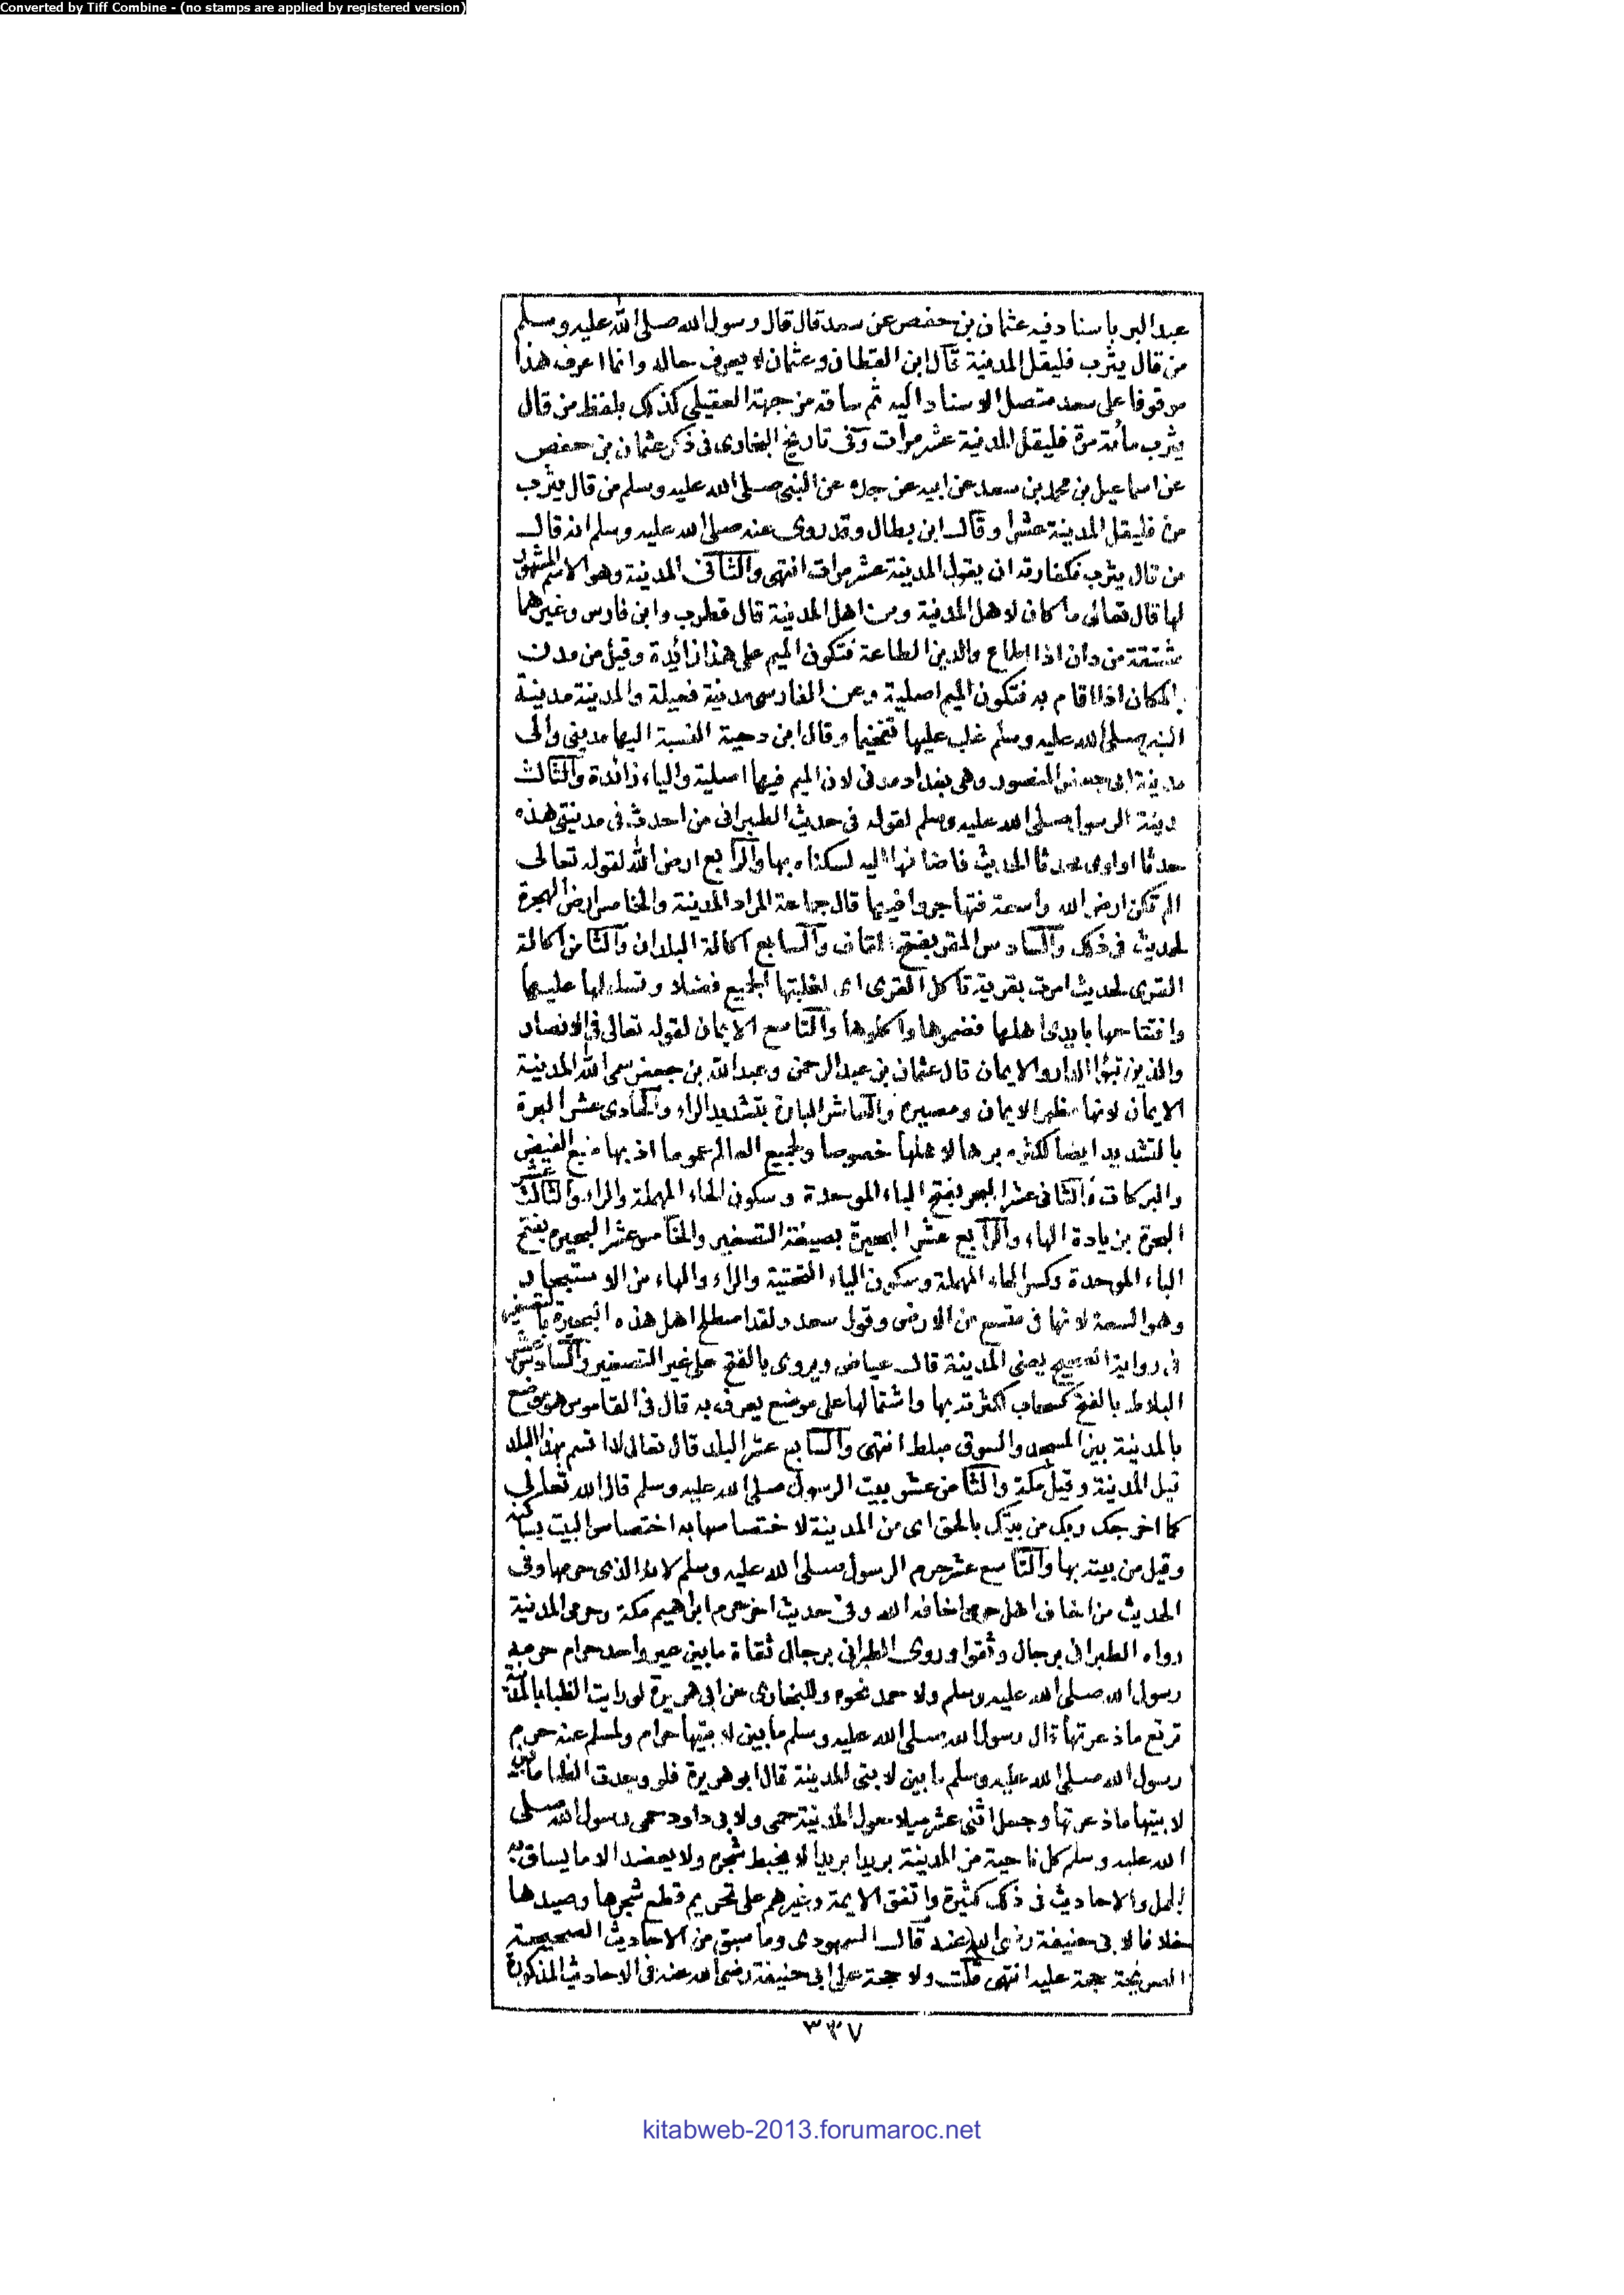 Converted by Tiff Combine - (no stamps are applied by registered version)
عبد البر باسناد فيه عثمان بن حفص عن سعد قال قال رسول الله صلى الله عليه وسلم
من قال يثرب فليقل المدينة قال ابن القطان وعثمان لا يعرف حاله وانما اعرف هذا
موقوفا على سعد متصل الاسناد اليه ثم ساقه من جهة العقيلي كذلك بلفظ من قال
يثرب مأئة مرة فليقل المدينة عشر مرات وفى تاريخ البخارى فى ذكر عثمان بن حفص
عن اسماعيل بن محمد بن سعد عن ابيه عن جده عن النبى صلى الله عليه وسلم من قال يثرب
مرة فليقل المدينة عشرا وقال ابن بطال وقد روى عنه صلى الله عليه وسلم انه قال
من قال يثرب فكفارته ان يقول المدينة عشر مرات انتهى والثانى المدينة وهو الاسم المشهور
لها قال تعالى ما كان لاهل المدينة ومن اهل المدينة قال قطرب وابن فارس وغيرهما
مشتقة من دان اذا اطاع والدين الطاعة فتكون الميم على هذا زائدة وقيل من مدن
بالمكان اذا اقام به فتكون الميم اصلية وعن الفارسى مدينة فعيلة والمدينة مدينة
النبى صلى الله عليه وسلم غلب عليها تفخيما وقال ابن دحية النسبة اليها مدينى والى
مدينة ابى جعفر المنصور وهى بغداد مدنى لان الميم فيها اصلية والياء زائدة والثالث
مدينة الرسول صلى الله عليه وسلم لقوله فى حديث الطبرانى من احدث فى مدينتى هذه
حدثا او اوى محدثا الحديث فاضافها اليه لسكناه بها والرابع ارض الله لقوله تعالى
الم تكن ارض الله واسعة فتهاجروا فيها قال جماعة المراد المدينة والخامس ارض الهجرة
لحديث فى ذلك والسادس المقر بفتح القاف والسابع اكالة البلدان والثامن اكالة
القرى لحديث امرت بقرية تأكل القرى اى لغلبتها الجميع فضلا وتسلطها عليها
وافتتاحها بايدى اهلها فضموها واكلوها والتاسع الايمان لقوله تعالى فى الانصار
والذين تبوؤا الدار والايمان قال عثمان بن عبد الرحمن وعبد الله بن جعفر سمى الله المدينة
الايمان لانها مظهر الايمان ومصيره والعاشر البارة بتشديد الراء والحادى عشر البرة
بالتشديد ايضا لكثره برها لاهلها خصوصا ولجميع العالم عموما اذ بها منبع الفيض
والبركات والثانى عشر البحر بفتح الباء الموحدة وسكون الحاء المهملة والراء والثالث عشر
البحرة بزيادة الهاء والرابع عشر البحيرة بصيغة التصغير والخامس عشر البحيره بفتح
الباء الموحدة وكسر الحاء المهملة وسكون الياء التحتية والراء والهاء من الاستبحار
وهو السعة لانها فى متسع من الارض وقول سعد ولقد اصطلح اهل هذه البحيرة بالتصغير
فى رواية الصحيح يعنى المدينة قال عياض ويروى بالفتح على غير التصغير والسادس عشر
البلاط بالفتح كسحاب لكثرته بها واشتمالها على موضع يعرف به قال فى القاموس هو موضع
بالمدينة بين المسجد والسوق مبلط انتهى والسابع عشر البلد قال تعالى لا اقسم بهذا البلد
قيل المدينة وقيل مكة والثامن عشر بيت الرسول صلى الله عليه وسلم قال الله تعالى
كما اخرجك ربك من بيتك بالحق اى من المدينة لاختصاصها به اختصاص البيت بساكنه
وقيل من بيته بها والتاسع عشر حرم الرسول صلى الله عليه وسلم لانه الذى حرمها وفى
الحديث من اخاف اهل حرمى اخافه الله وفى حديث اخر حرم ابراهيم مكة وحرمى المدينة
رواه الطبرانى برجال وثقوا وروى الطبرانى برجال ثقاة ما بين عير واحد حرام حرمه
رسول الله صلى الله عليه وسلم ولاحمد نحوه وللبخارى عن ابى هريرة لو رايت الظبا بالمدينة
ترتع ما ذعرتها قال رسول الله صلى الله عليه وسلم ما بين لابتيها حرام ولمسلم عنه حرم
رسول الله صلى الله عليه وسلم ما بين لابتى المدينة قال ابو هريرة فلو وجدت الظبا ما بين
لابتيها ما ذعرتها وجعل اثنى عشر ميلا حول المدينة حمى ولابى داود حمى رسول الله صلى
الله عليه وسلم كل ناحية من المدينة بريدا بريدا لا يخبط شجره ولا يعضد الا ما يساق به
الجمل والاحاديث فى ذلك كثيرة واتفق الايمة وغيرهم على تحريم قطع شجرها وصيدها
خلافا لابى حنيفة رضى الله عنه قال السمهودى وما سبق من الاحاديث الصحيحة
الصريحة حجة عليه انتهى قلت ولا حجة على ابى حنيفة رضى الله عنه فى الاحاديث المذكورة
٣٣٧
kitabweb-2013.forumaroc.net